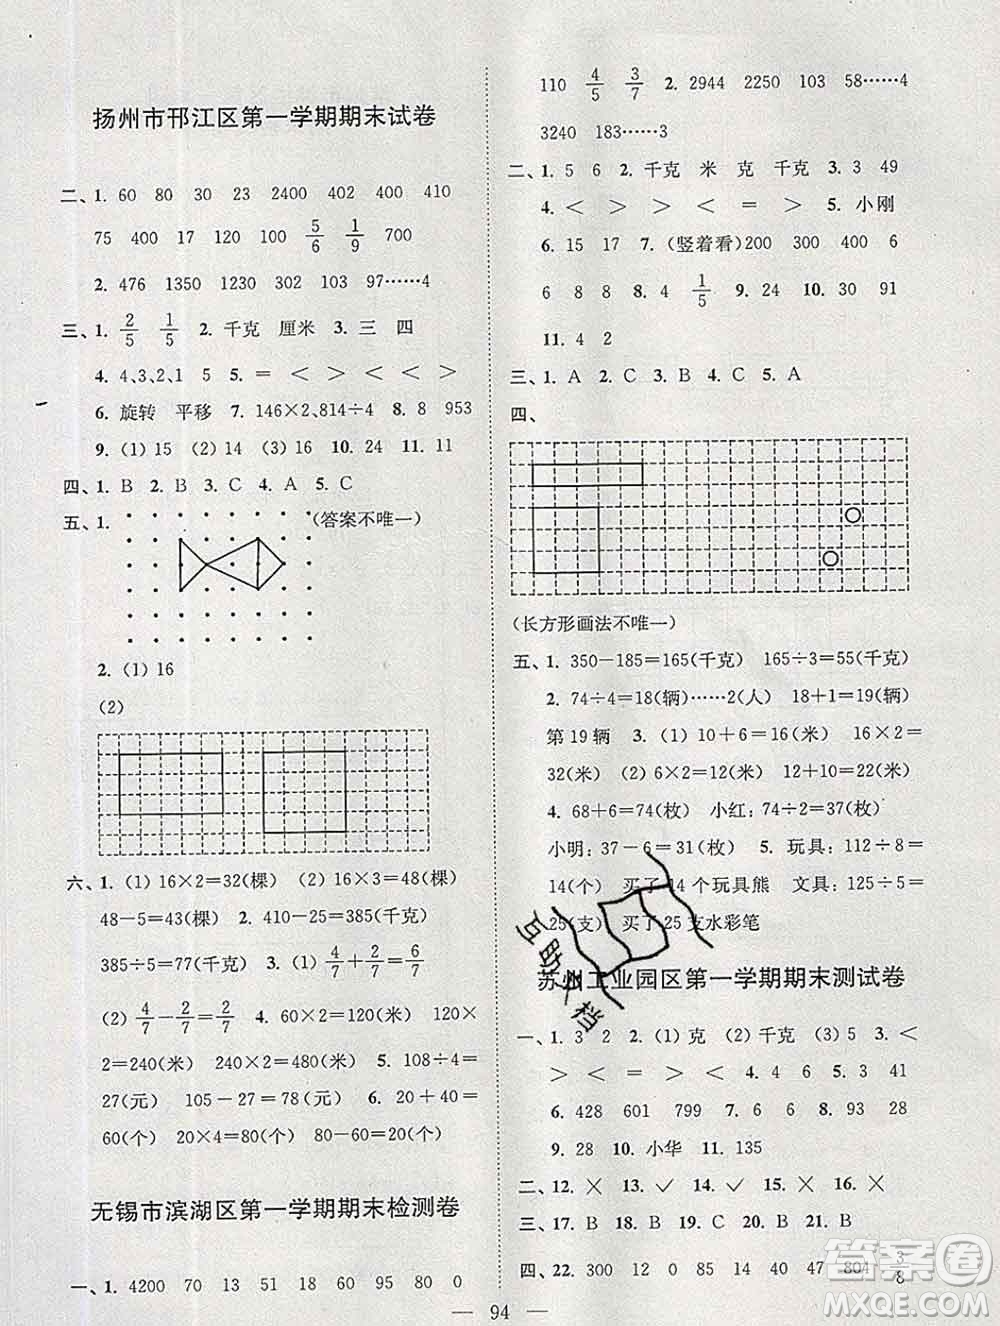 扬州市邗江区第一学期期末试卷
二、1. 60 80 30 23 2400 402 400 410
75 400 17 120 100 5/6 1/9 700
2. 476 1350 1230 302 103 97……4
三、1. 2/5 1/5 2. 千克 厘米 3. 三 四
4. 4,3、2、1 5 5. = < > < < >
6. 旋转 平移 7. 146×2、814÷4 8. 8 953
9. (1) 15 (2) 14 (3) 16 10. 24 11. 11
四、1. B 2. B 3. C 4. A 5. C
五、1.
(答案不唯一)
2. (1) 16
(2)
六、1. (1) 16×2=32(棵) (2) 16×3=48(棵)
48-5=43(棵) 2. 410-25=385(千克)
385÷5=77(千克) 3. (1) 4/7+2/7=6/7
(2) 4/7-2/7=2/7 4. 60×2=120(米) 120
×2=240(米) 240×2=480(米) 5. 108÷4=
27(元) 105-27=78(元) 6. 20+40=
60(个) 20×4=80(个) 80-60=20(个)
无锡市滨湖区第一学期期末检测卷
一、1. 4200 70 13 51 18 360 95 80 0
110 4/5 3/7 2. 2944 2250 103 58……4
3240 183……3
二、1. 5 6 2. 千克 米 克 千克 3. 3 49
4. < > > < = > 5. 小刚
6. 15 17 7. (竖着看)200 300 400 6
6 8 8 8. 4 1/5 9. 24 10. 30 91
11. 4 2
三、1. A 2. C 3. B 4. C 5. A
四、
(长方形画法不唯一)
五、1. 350-185=165(千克) 165÷3=55(千克)
2. 74÷4=18(辆)……2(人) 18+1=19(辆)
第19辆 3. (1) 10+6=16(米) 16×2=
32(米) (2) 6×2=12(米) 12×4=48(米)
4. 68+6=74(枚) 小红:74÷2=37(枚)
小明:37-6=31(枚) 5. 玩具:112÷8=
14(个) 买了14个玩具熊 文具:125÷5=
25(支) 买了25支水彩笔
苏州工业园区第一学期期末测试卷
一、1. 3 2 2. (1) 克 (2) 千克 (3) 5 3. <
> < = > < 4. 4 6 5. 3 41
6. 428 601 799 7. 2 6 8. 93 28
9. 28 10. 小华 11. 135
二、12. × 13. ✓ 14. ✓ 15. × 16. ×
三、17. B 18. B 19. C 20. B 21. B
四、22. 300 12 0 85 14 40 47 804 3/8
94
互助文档
答案圈
MXQE.COM